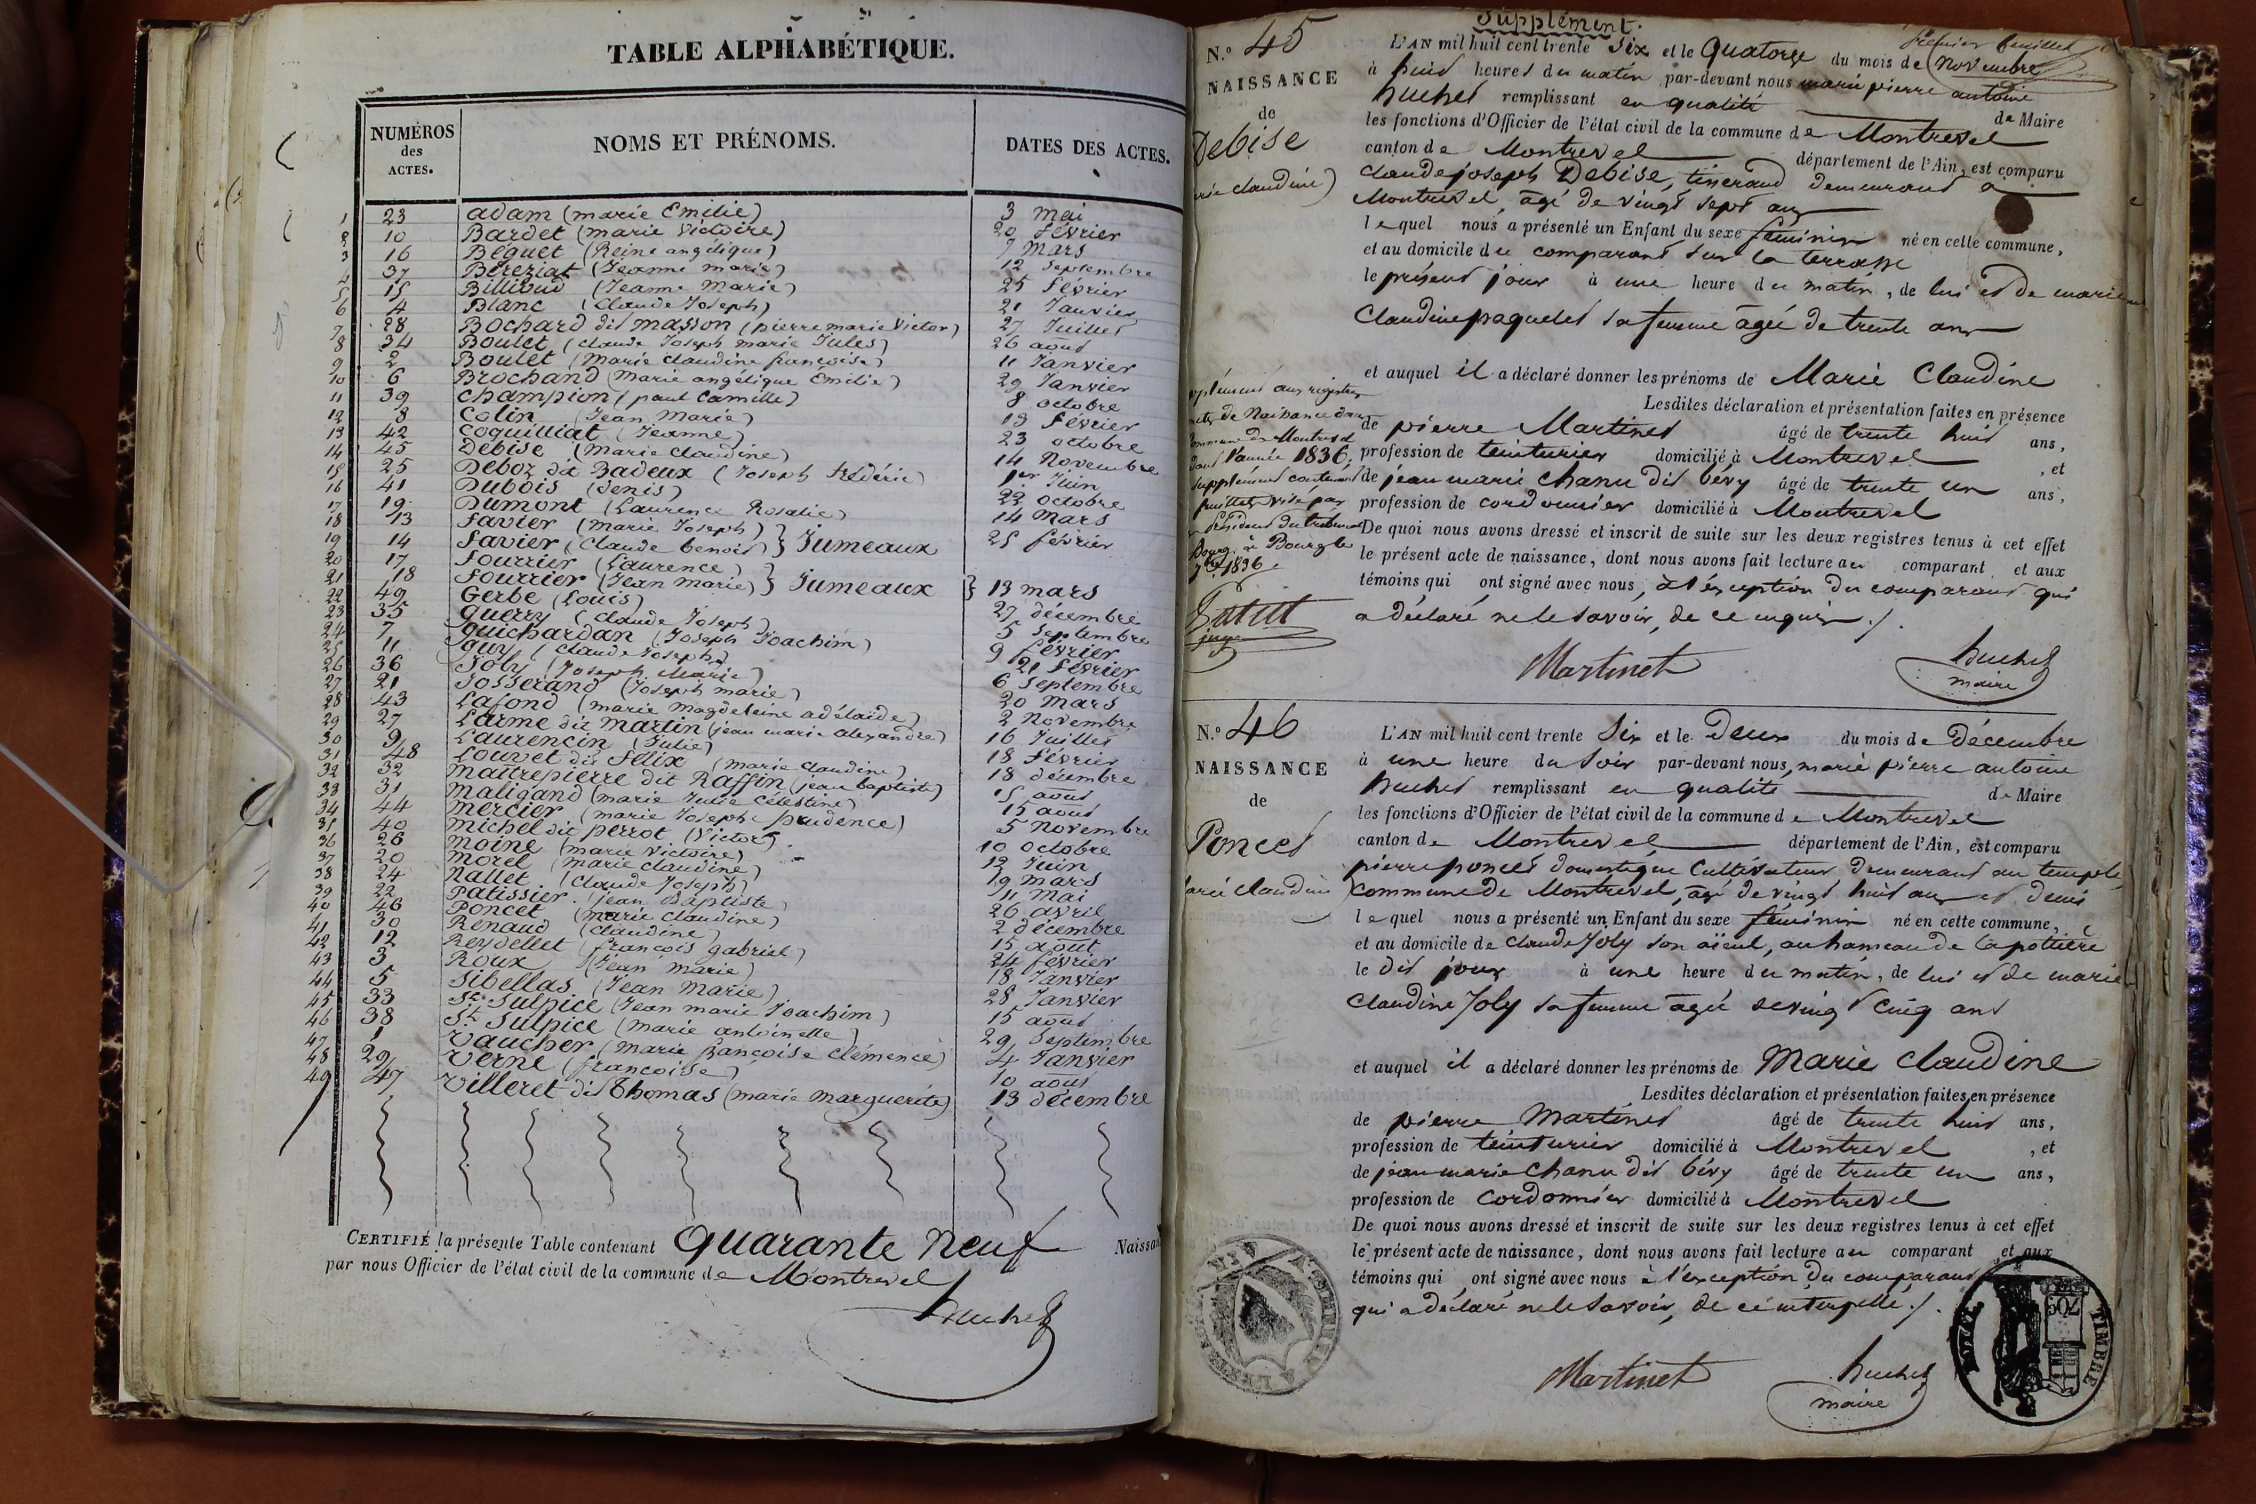 TABLE ALPHABÉTIQUE.
NUMÉROS des ACTES. NOMS ET PRÉNOMS. DATES DES ACTES.
1 23 adam (marie Emilie) 3 mai
2 10 Bardet (marie Victoire) 20 février
3 16 Béguet (Reine angélique) 7 mars
4 37 Béréziat (Jeanne marie) 12 septembre
5 15 Billioud (Jeanne Marie) 25 février
6 4 Blanc (Claude Joseph) 21 Janvier
7 28 Bochard dit masson (pierre marie Victor) 27 Juillet
8 34 Boulet (claude Joseph marie Jules) 26 aout
9 2 Boulet (Marie claudine françoise) 11 Janvier
10 6 Brochand (Marie angélique Émilie) 29 Janvier
11 39 Champion (paul Camille) 8 octobre
12 8 Colin (Jean Marie) 13 février
13 42 Coquilliat (Jeanne) 23 octobre
14 45 Debise (Marie Claudine) 14 Novembre
15 25 Deboz dit Badeux (Joseph frédéric) 1er Juin
16 41 Dubois (Denis) 22 octobre
17 19 Dumont (Laurence Rosalie) 14 Mars
18 13 favier (Marie Joseph)
19 14 favier (Claude benoit) } Jumeaux 25 février
20 17 fourrier (Laurence)
21 18 fourrier (Jean Marie) } Jumeaux } 13 mars
22 49 Gerbe (Louis) 27 décembre
23 35 Guerry (Claude Joseph) 5 septembre
24 7 Guichardan (Joseph Joachim) 9 février
25 11 Guy (Claude Joseph) 21 février
26 36 Joly (Joseph Marie) 6 Septembre
27 21 Josserand (Joseph marie) 20 Mars
28 43 Lafond (marie Magdeleine adélaïde) 2 Novembre
29 27 Larme dit martin (jean marie alexandre) 16 Juillet
30 9 Laurencin (Julie) 18 février
31 48 Louvet dit félix (marie Claudine) 18 décembre
32 32 maîtrepierre dit Raffin (jean baptiste) 15 aout
33 31 maligand (marie Julie Célestine) 15 aout
34 44 mercier (marie Joseph prudence) 5 Novembre
35 40 michel dit perrot (Victor) 10 octobre
36 26 moine (marie Victoire) 12 Juin
37 20 morel (Marie claudine) 19 mars
38 24 Nallet (Claude Joseph) 11 Mai
39 22 Patissier (jean Baptiste) 26 avril
40 46 Poncet (Marie Claudine) 2 décembre
41 30 Renaud (Claudine) 15 aout
42 12 Reydellet (françois gabriel) 24 février
43 3 Roux (Jean Marie) 18 Janvier
44 5 Sibellas (Jean Marie) 28 Janvier
45 33 St Sulpice (Jean marie Joachim) 15 aout
46 38 St Sulpice (marie antoinette) 29 Septembre
47 1 Vaucher (marie françoise Clémence) 4 Janvier
48 29 Verne (françoise) 10 aout
49 47 Villeret dit Thomas (marie Marguerite) 13 décembre
CERTIFIÉ la présente Table contenant Quarante Neuf Naissan
par nous Officier de l'état civil de la commune de Montrevel
huchet
Supplément.
premier feuillet
N.º 45
NAISSANCE
de
Debise
rie claudine)
L'AN mil huit cent trente Six et le Quatorze du mois de Novembre
à huit heures du matin par-devant nous marie pierre antoine
huchet remplissant en qualité de Maire
les fonctions d'Officier de l'état civil de la commune de Montrevel
canton de Montrevel département de l'Ain, est comparu
claude joseph Debise, tisserand demeurant a
Montrevel, agé de vingt sept ans
lequel nous a présenté un Enfant du sexe féminin né en cette commune,
et au domicile du comparant sur la terrasse
le présent jour à une heure du matin, de lui et de marie
Claudine paquelet sa femme agée de trente ans
et auquel il a déclaré donner les prénoms de Marie Claudine
Lesdites déclaration et présentation faites en présence
de pierre Martinet âgé de trente huit ans,
profession de teinturier domicilié à Montrevel, et
de jean marie Chanu dit bévy âgé de trente un ans,
profession de cordonnier domicilié à Montrevel
De quoi nous avons dressé et inscrit de suite sur les deux registres tenus à cet effet
le présent acte de naissance, dont nous avons fait lecture au comparant et aux
témoins qui ont signé avec nous, à l'exception du comparant qui
a déclaré ne le savoir, de ce enquis ./.
Martinet huchet
maire
plément aux registres
de Naissance de
commune de Montrevel
l'année 1836,
supplément contenant
feuillets visé par
président du tribunal
Bourg à Bourg le
1836
juge
N.º 46
NAISSANCE
de
Poncet
arie Claudine
L'AN mil huit cent trente Six et le Deux du mois de décembre
à une heure du soir par-devant nous, marie pierre antoine
huchet remplissant en qualité de Maire
les fonctions d'Officier de l'état civil de la commune de Montrevel
canton de Montrevel département de l'Ain, est comparu
pierre poncet domestique Cultivateur demeurant au temple,
commune de Montrevel, agé de vingt huit ans et demi
lequel nous a présenté un Enfant du sexe féminin né en cette commune,
et au domicile de Claude Joly son aïeul, au hameau de la potière
le dit jour à une heure du matin, de lui et de marie
Claudine Joly sa femme agée de vingt cinq ans
et auquel il a déclaré donner les prénoms de Marie Claudine
Lesdites déclaration et présentation faites en présence
de pierre Martinet âgé de trente huit ans,
profession de teinturier domicilié à Montrevel, et
de jean marie Chanu dit bévy âgé de trente un ans,
profession de cordonnier domicilié à Montrevel
De quoi nous avons dressé et inscrit de suite sur les deux registres tenus à cet effet
le présent acte de naissance, dont nous avons fait lecture au comparant et aux
témoins qui ont signé avec nous à l'exception du comparant
qui a déclaré ne le savoir, de ce interpellé ./.
Martinet huchet
maire
TIMBRE